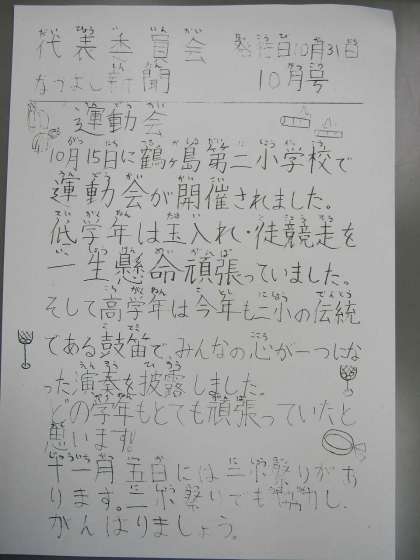 代表委員会 発行日10月31日
なかよし新聞 10月号
運動会
10月15日に鶴ヶ島第二小学校で
運動会が開催されました。
低学年は玉入れ・徒競走を
一生懸命頑張っていました。
そして高学年は今年も二小の伝統
である鼓笛で、みんなの心が一つにな
った演奏を披露しました。
どの学年もとても頑張っていたと
思います!
十一月五日には二小祭りがあ
ります。二小祭りでも協力し、
がんばりましょう。